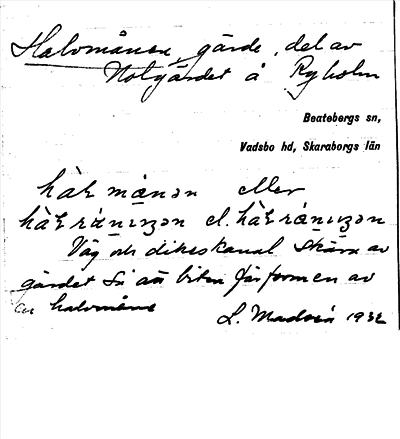 Halvmånen, gärde, del av
Nolgärdet å Ryholm
Beatebergs sn,
Vadsbo hd, Skaraborgs län
eller
el.
Väg och dikeskanal skära av
gärdet så att biten får formen av
en halvmåne
L. Madsén 1932